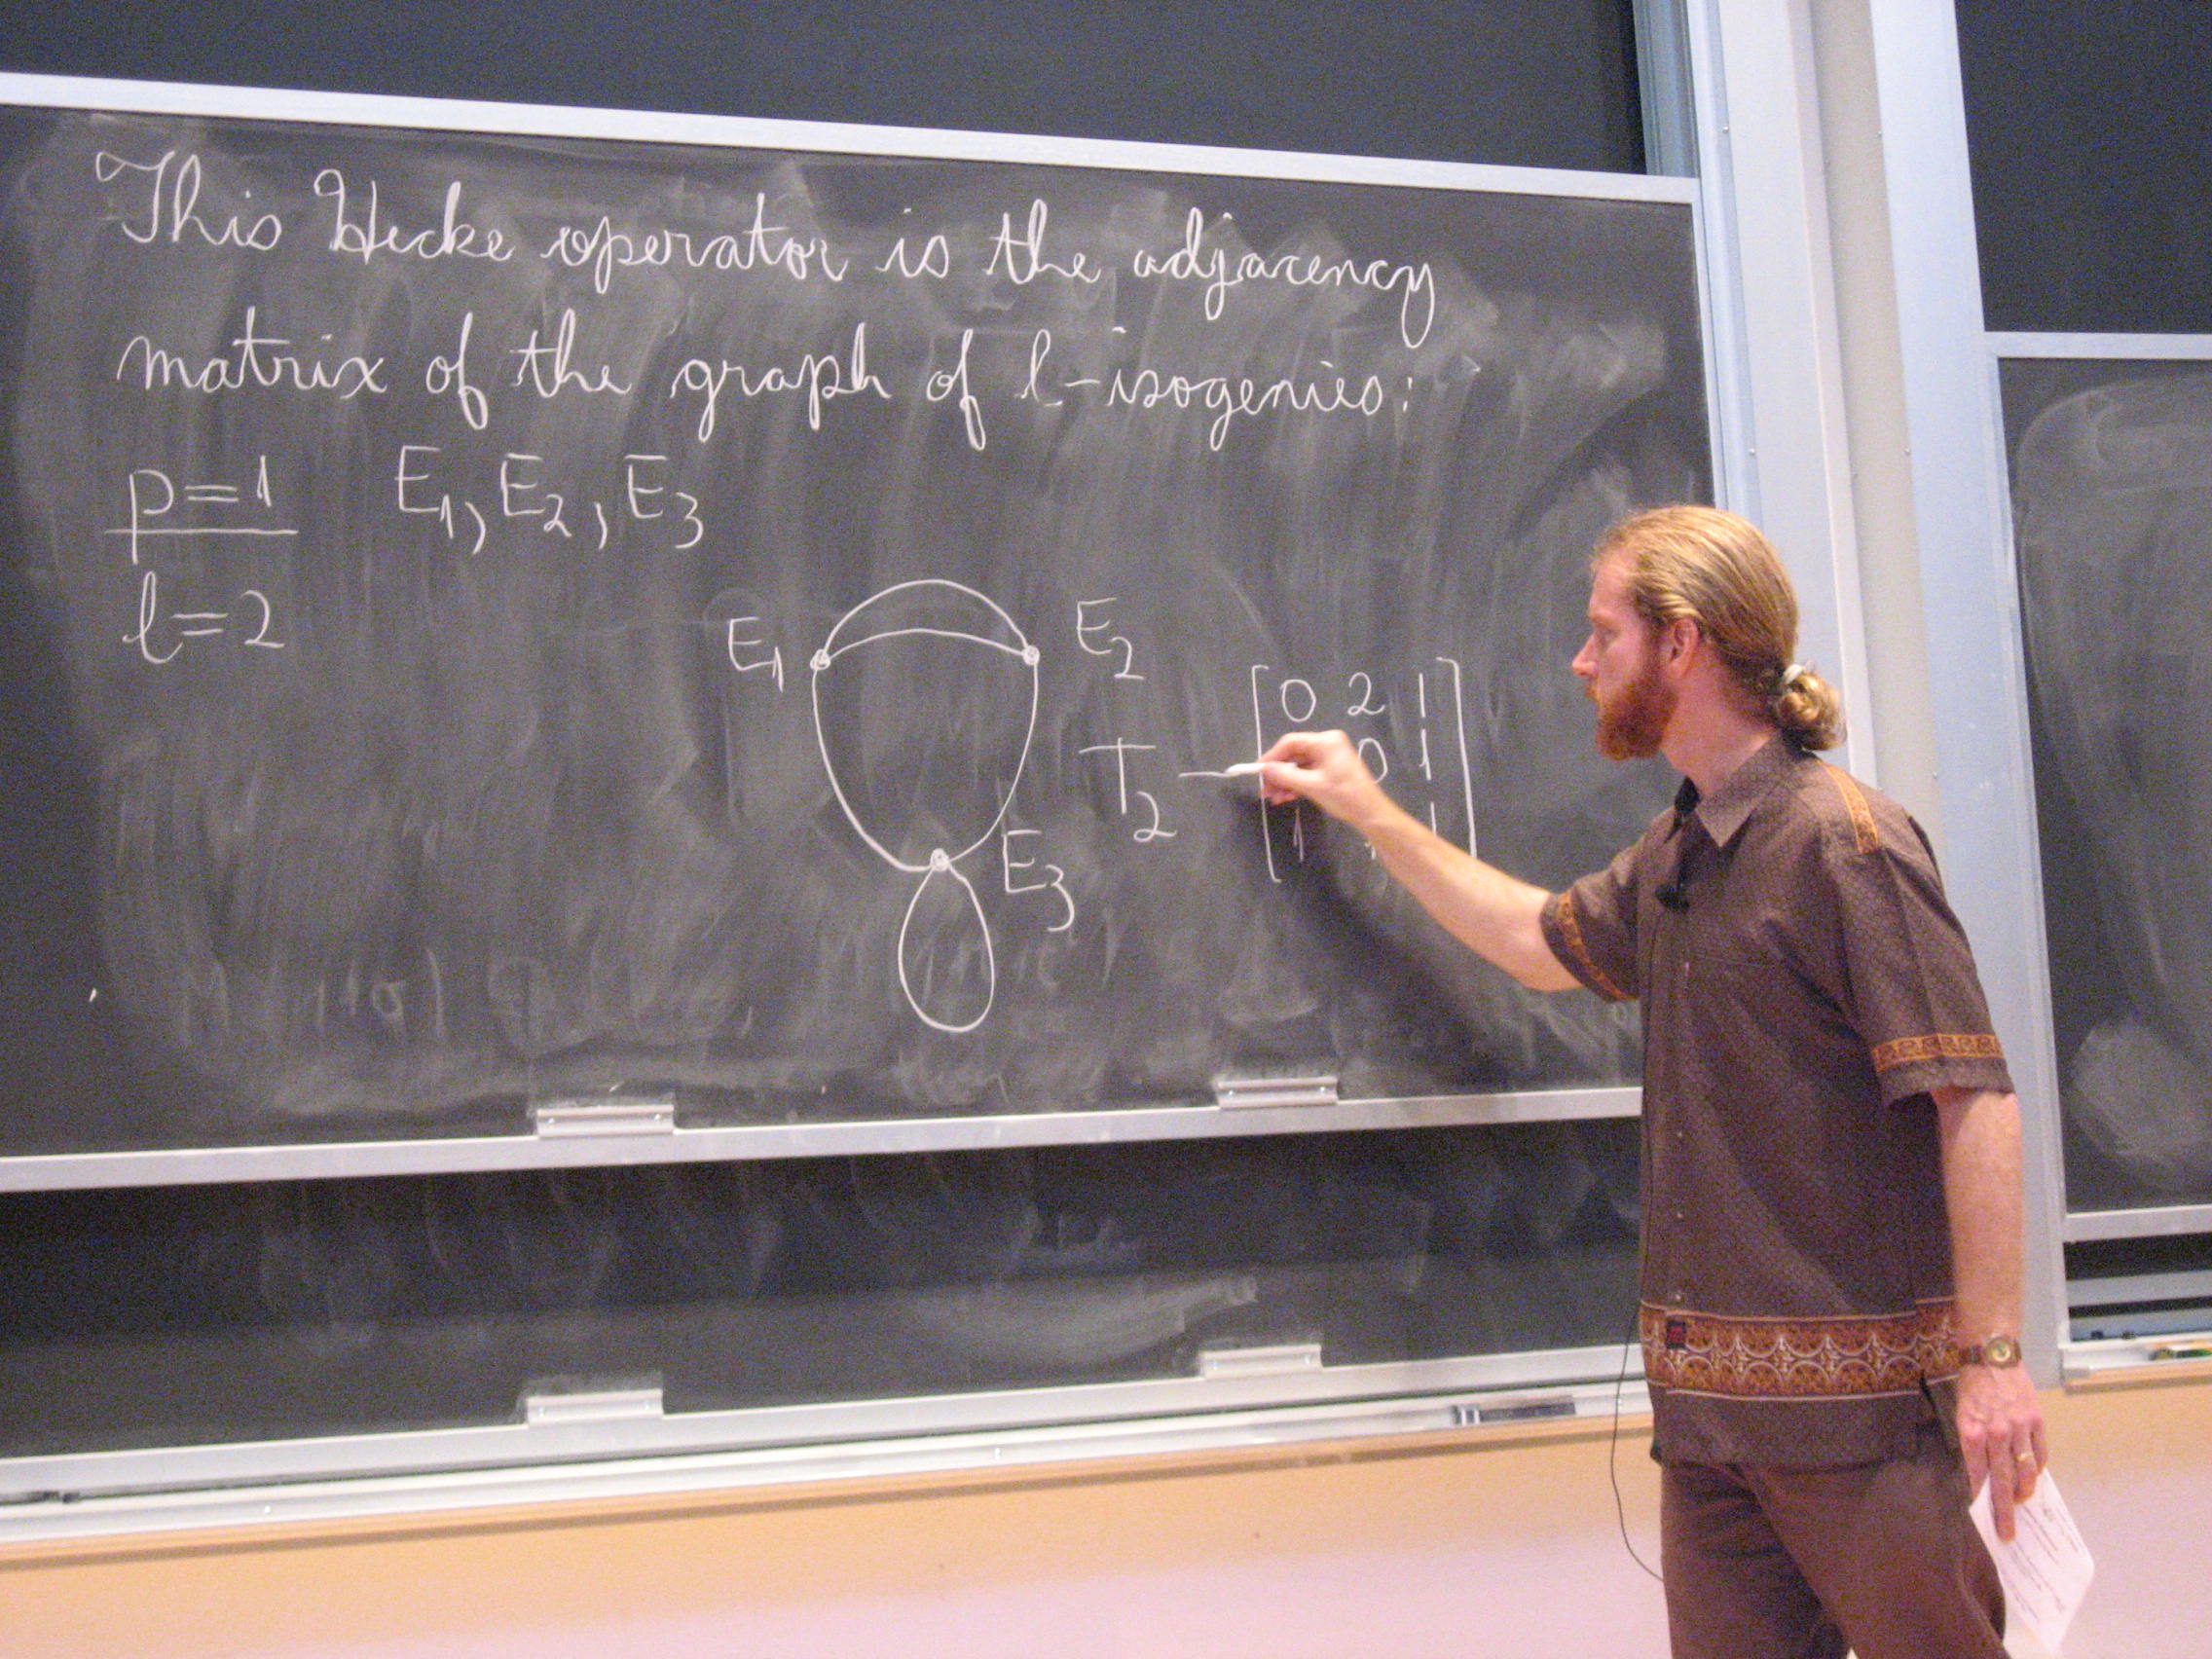 This Hecke operator is the adjacency
matrix of the graph of l-isogenies:
p=1 E₁, E₂, E₃
l=2
E₁ E₂
E₃
T₂ —
0 2 1
0 1
1 1